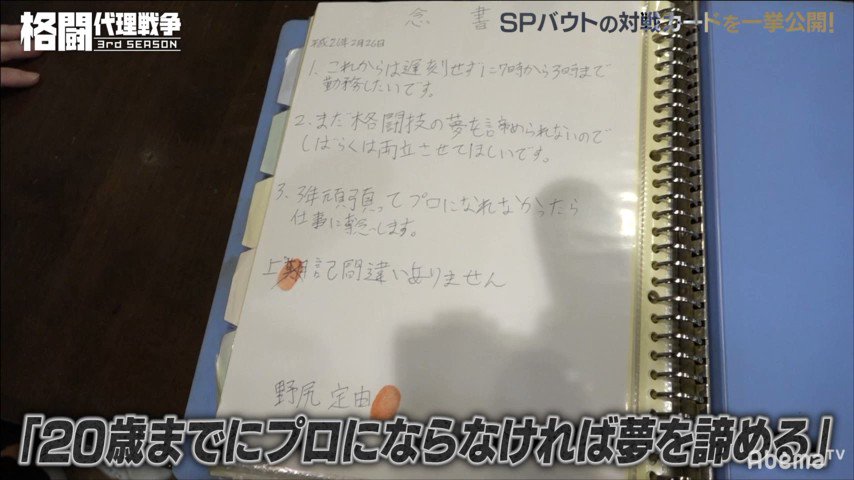 格闘代理戦争
3rd SEASON
SPバウトの対戦カードを一挙公開!
念書
平成26年2月26日
1. これからは遅刻せずに7時から3時まで
勤務したいです。
2. まだ格闘技の夢も諦められないので
しばらくは両立させてほしいです。
3. 3年頑張ってプロになれなかったら
仕事に専念します。
上記間違いありません
野尻 定由
「20歳までにプロにならなければ夢を諦める」
AbemaTV